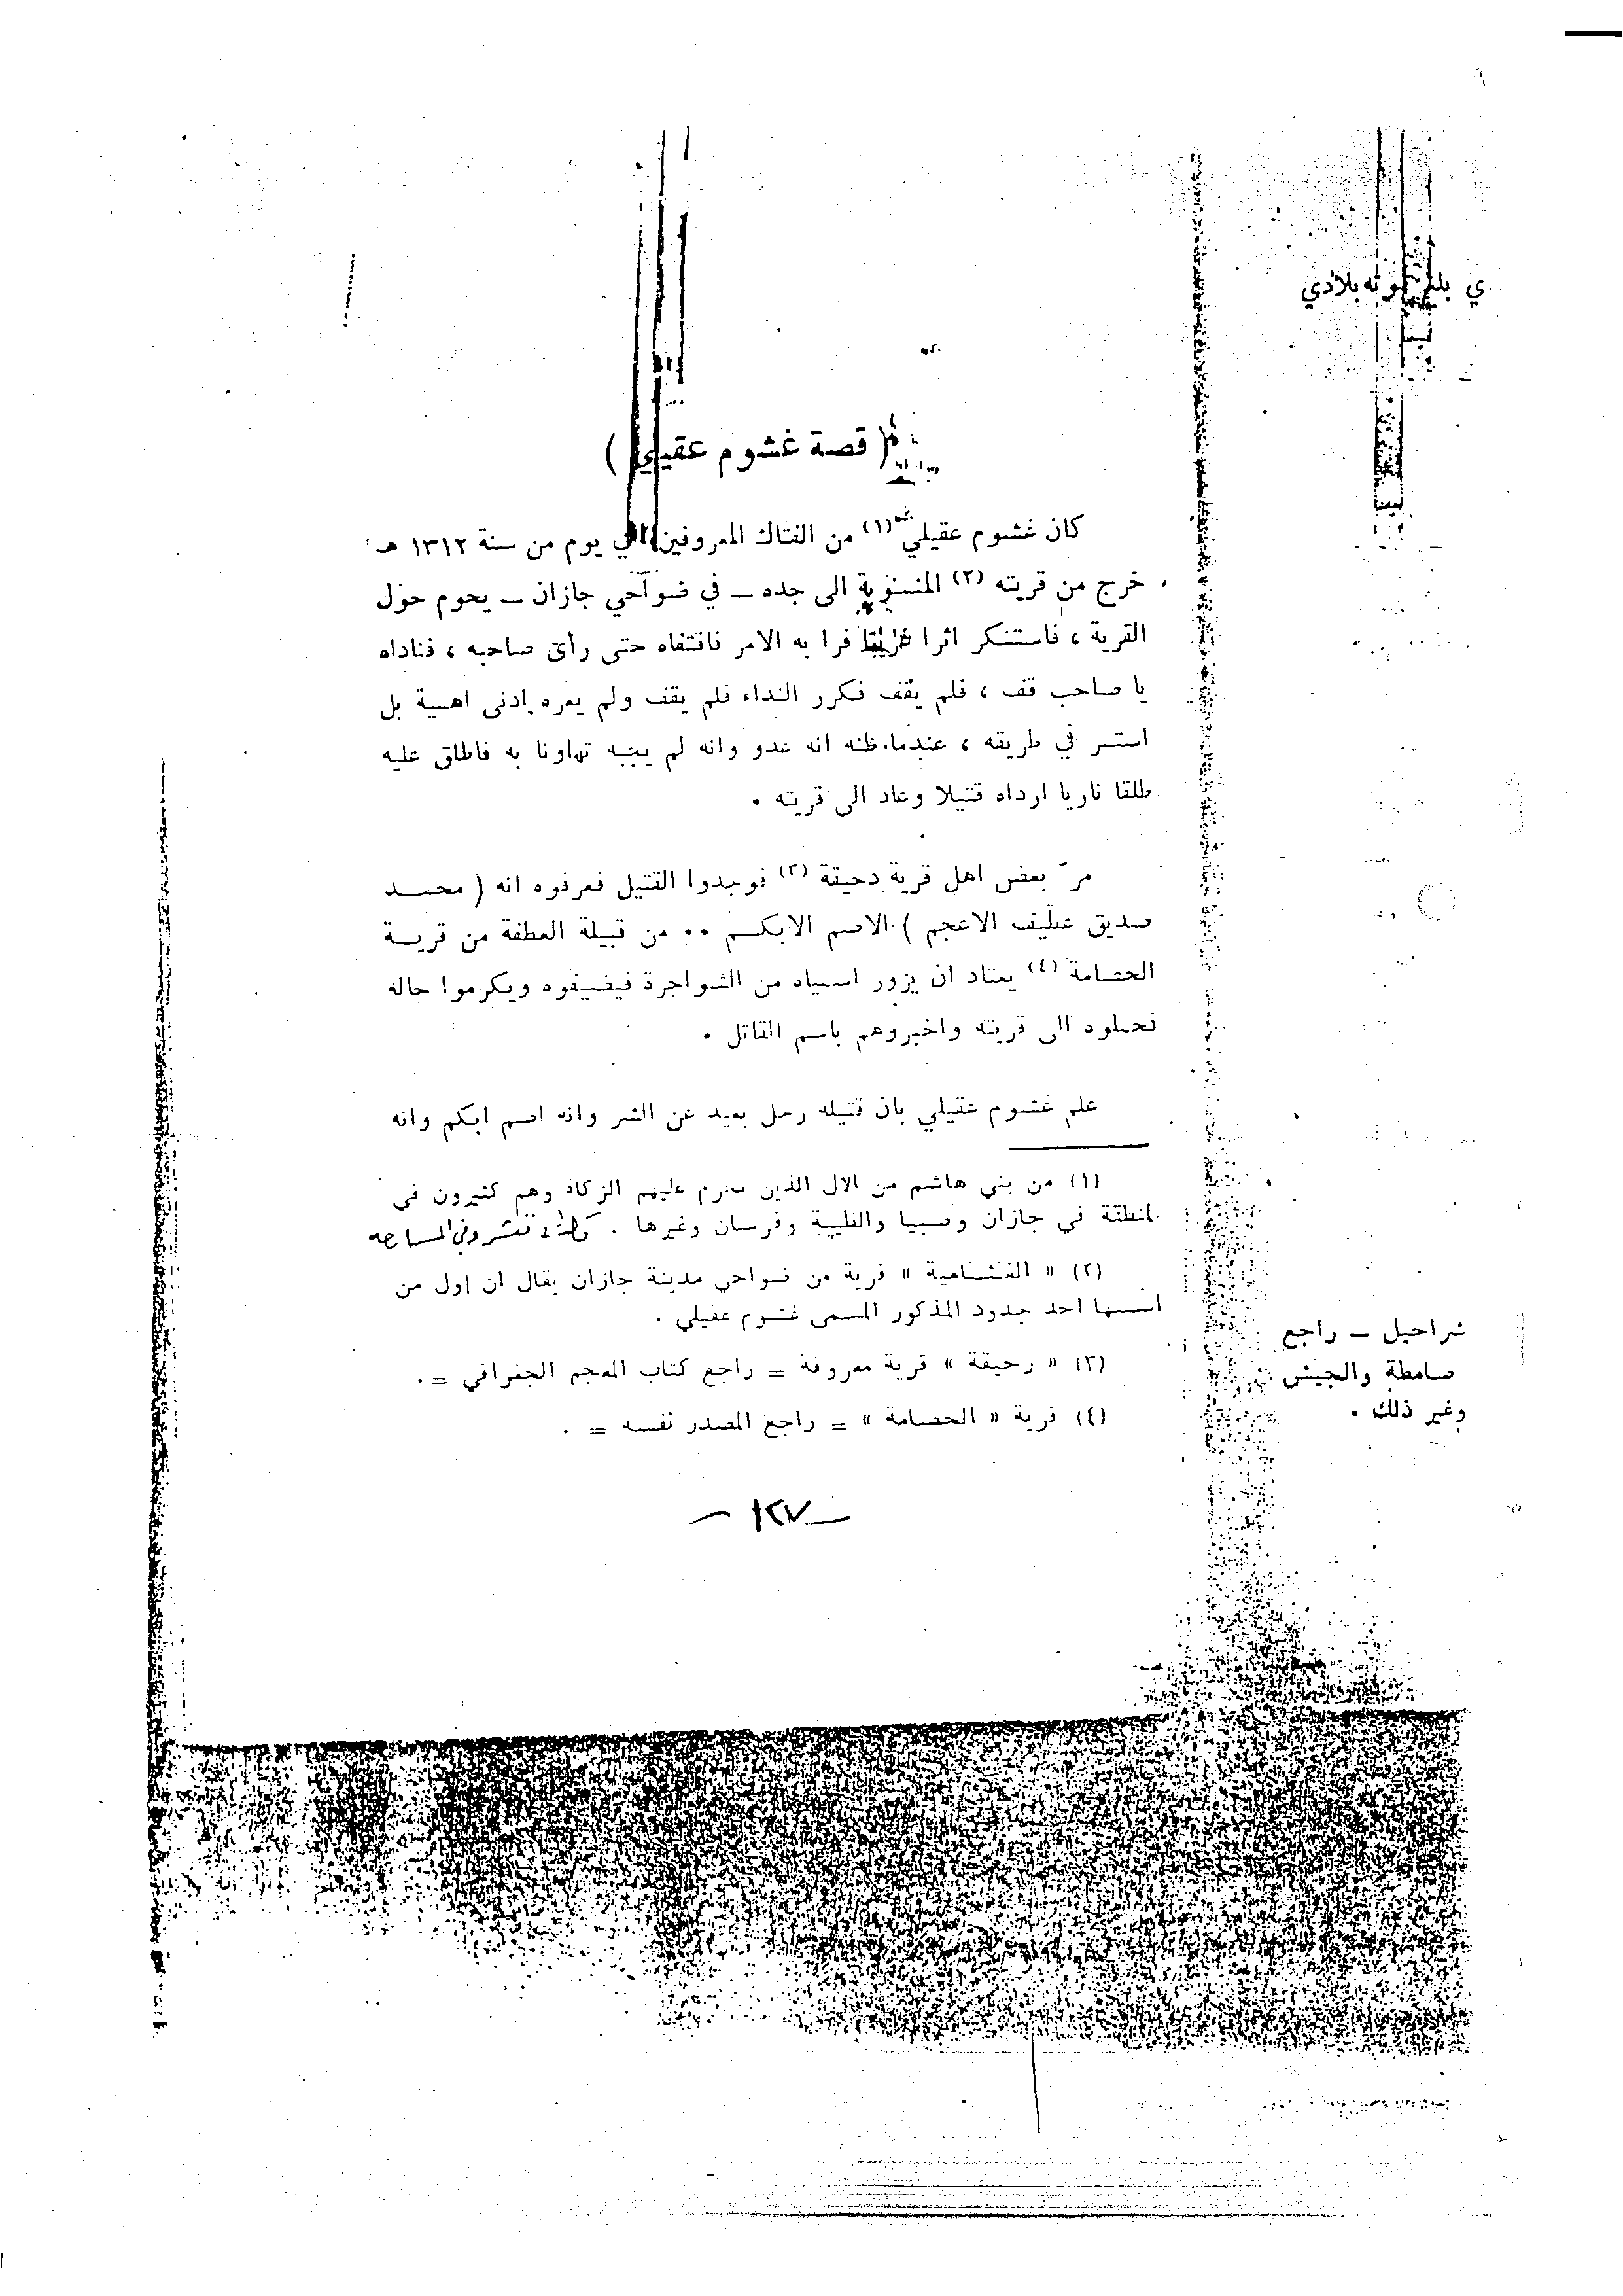 ي بلادي
( قصة غشوم عقيلي )
كان غشوم عقيلي (١) من الفتاك المعروفين في يوم من سنة ١٣١٢ هـ
خرج من قريته (٢) المنسوبة الى جده ــ في ضواحي جازان ــ يحوم حول
القرية ، فاستنكر اثرا غريبا فرا به الامر فاقتفاه حتى رأى صاحبه ، فناداه
يا صاحب قف ، فلم يقف فكرر النداء فلم يقف ولم يعره ادنى اهمية بل
استمر في طريقه ، عندما ظنه انه عدو وانه لم يجبه تهاونا به فاطلق عليه
طلقا ناريا ارداه قتيلا وعاد الى قريته .
مرّ بعض اهل قرية دحيقة (٣) فوجدوا القتيل فعرفوه انه ( محمــد
صديق عطيف الاعجم ) الاصم الابكــم .. من قبيلة العطفة من قريــة
الحسامة (٤) يعتاد ان يزور اسياد من الشواجرة فيضيفوه ويكرموا حاله
فحملوه الى قريته واخبروهم باسم القاتل .
علم غشوم عقيلي بان قتيله رجل بعيد عن الشر وانه اصم ابكم وانه
(١) من بني هاشم من الال الذين تحرم عليهم الزكاة وهم كثيرون في
المنطقة في جازان وصبيا والظبية وفرسان وغيرها .
(٢) « الغشامية » قرية من ضواحي مدينة جازان يقال ان اول من
اسسها احد جدود المذكور المسمى غشوم عقيلي .
(٣) « رحيقة » قرية معروفة = راجع كتاب المعجم الجغرافي = .
(٤) قرية « الحسامة » = راجع المصدر نفسه = .
شراحيل ــ راجع
صامطة والجيش
وغير ذلك .
ــ ١٢٧ ــ